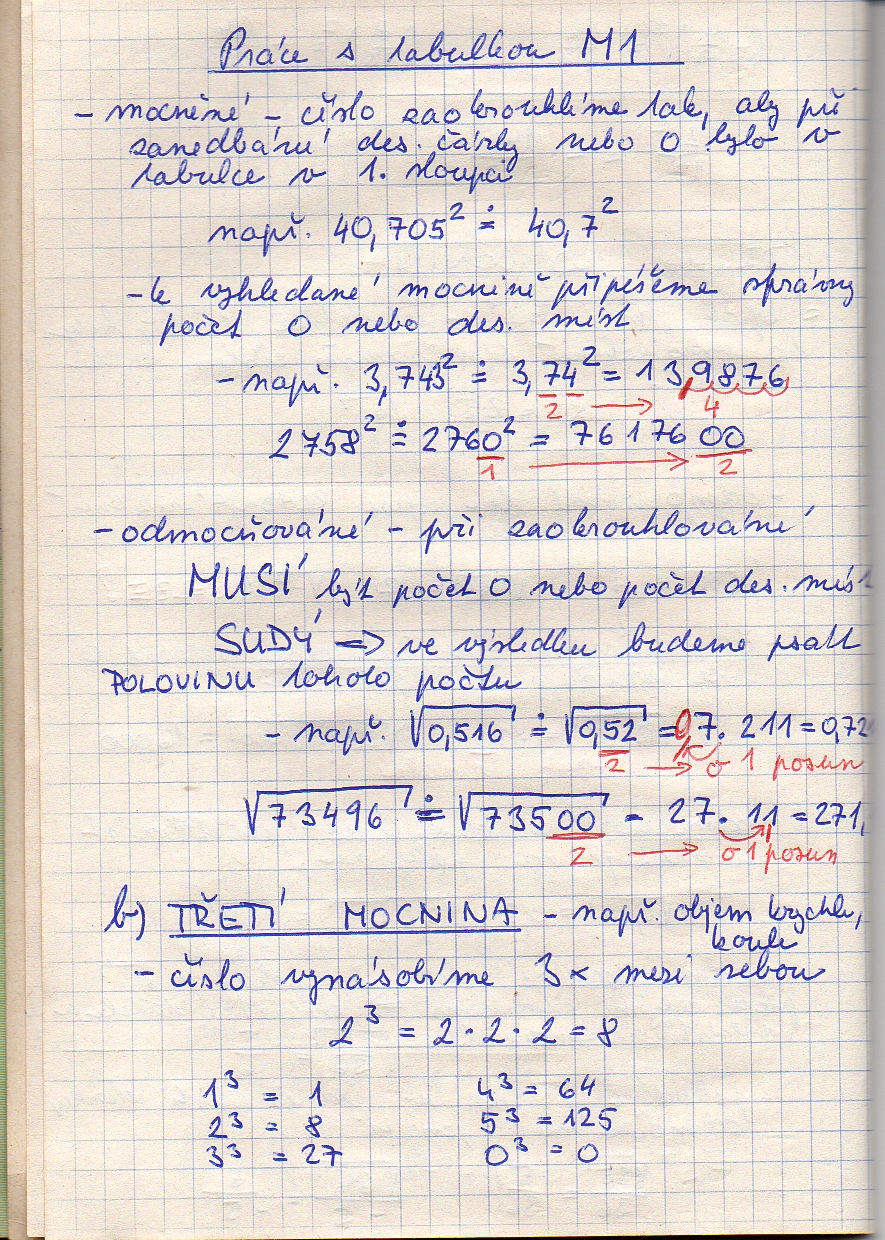 Práce s tabulkou M1
- mocnění - číslo zaokrouhlíme tak, aby při
zanedbání des. čárky nebo 0 bylo v
tabulce v 1. sloupci
např. 40,705² ≐ 40,7²
- k vyhledané mocnině připíšeme správný
počet 0 nebo des. míst
- např. 3,743² ≐ 3,74² = 13,9876
2 → 4
2758² ≐ 2760² = 7617600
1 → 2
- odmocňování - při zaokrouhlování
MUSÍ být počet 0 nebo počet des. míst
SUDÝ => ve výsledku budeme psát
POLOVINU tohoto počtu
- např. √0,516 ≐ √0,52 = 0,7.211 = 0,72
2 → o 1 posun
√73496 ≐ √73500 = 27.11 = 271,
2 → o 1 posun
b) TŘETÍ MOCNINA - např. objem krychle,
koule
- číslo vynásobíme 3x mezi sebou
2³ = 2·2·2 = 8
1³ = 1 4³ = 64
2³ = 8 5³ = 125
3³ = 27 0³ = 0